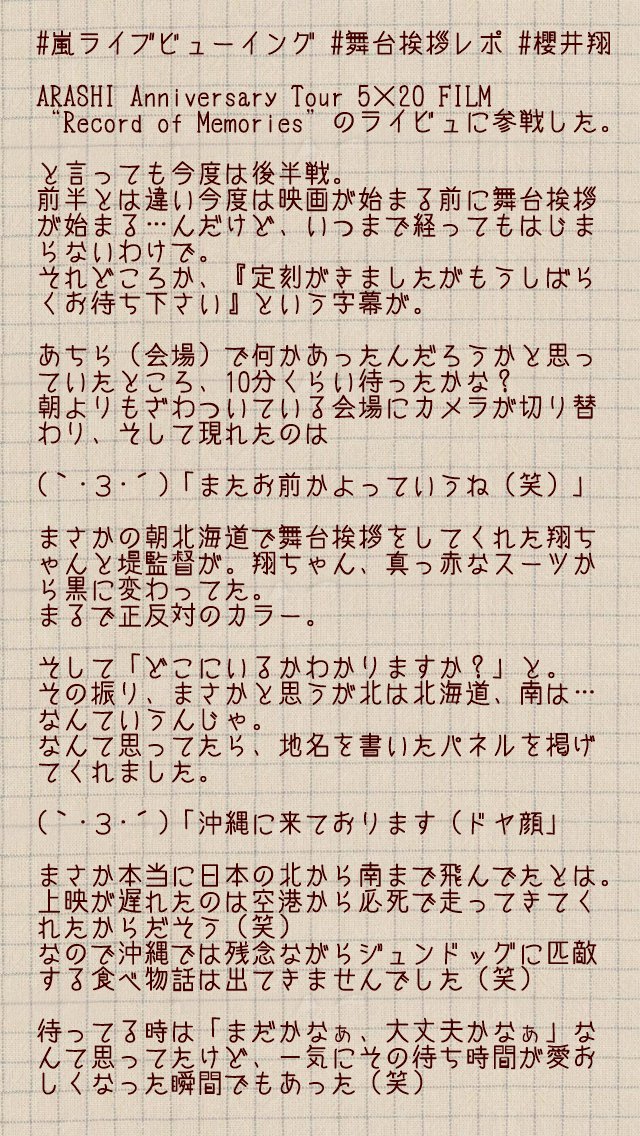 #嵐ライブビューイング #舞台挨拶レポ #櫻井翔
ARASHI Anniversary Tour 5×20 FILM
“Record of Memories”のライビュに参戦した。
と言っても今度は後半戦。
前半とは違い今度は映画が始まる前に舞台挨拶
が始まる…んだけど、いつまで経ってもはじま
らないわけで。
それどころか、『定刻がきましたがもうしばら
くお待ち下さい』という字幕が。
あちら（会場）で何かあったんだろうかと思っ
ていたところ、10分くらい待ったかな？
朝よりもざわついている会場にカメラが切り替
わり、そして現れたのは
(｀･3･´)「またお前かよっていうね（笑）」
まさかの朝北海道で舞台挨拶をしてくれた翔ち
ゃんと堤監督が。翔ちゃん、真っ赤なスーツか
ら黒に変わってた。
まるで正反対のカラー。
そして「どこにいるかわかりますか？」と。
その振り、まさかと思うが北は北海道、南は…
なんていうんじゃ。
なんて思ってたら、地名を書いたパネルを掲げ
てくれました。
(｀･3･´)「沖縄に来ております（ドヤ顔」
まさか本当に日本の北から南まで飛んでたとは。
上映が遅れたのは空港から必死で走ってきてく
れたからだそう（笑）
なので沖縄では残念ながらジュンドッグに匹敵
する食べ物話は出てきませんでした（笑）
待ってる時は「まだかなぁ、大丈夫かなぁ」な
んて思ってたけど、一気にその待ち時間が愛お
しくなった瞬間でもあった（笑）